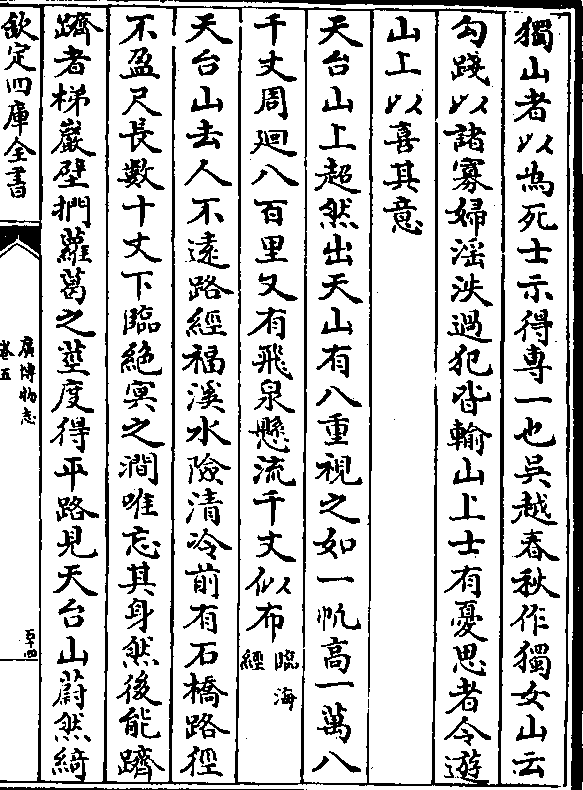 獨山者以為死士示得專一也吳越春秋作獨女山云
勾踐以諸寡婦淫泆過犯皆輸山上士有憂思者令遊
山上以喜其意
天台山上超然出天山有八重視之如一帆高一萬八
千丈周廻八百里又有飛泉懸流千丈似布臨海經
天台山去人不遠路經福溪水險清冷前有石橋路徑
不盈尺長數十丈下臨絶㝠之澗唯忘其身然後能躋
躋者梯巖壁捫蘿葛之莖度得平路見天台山蔚然綺
欽定四庫全書
廣博物志
卷五
五四